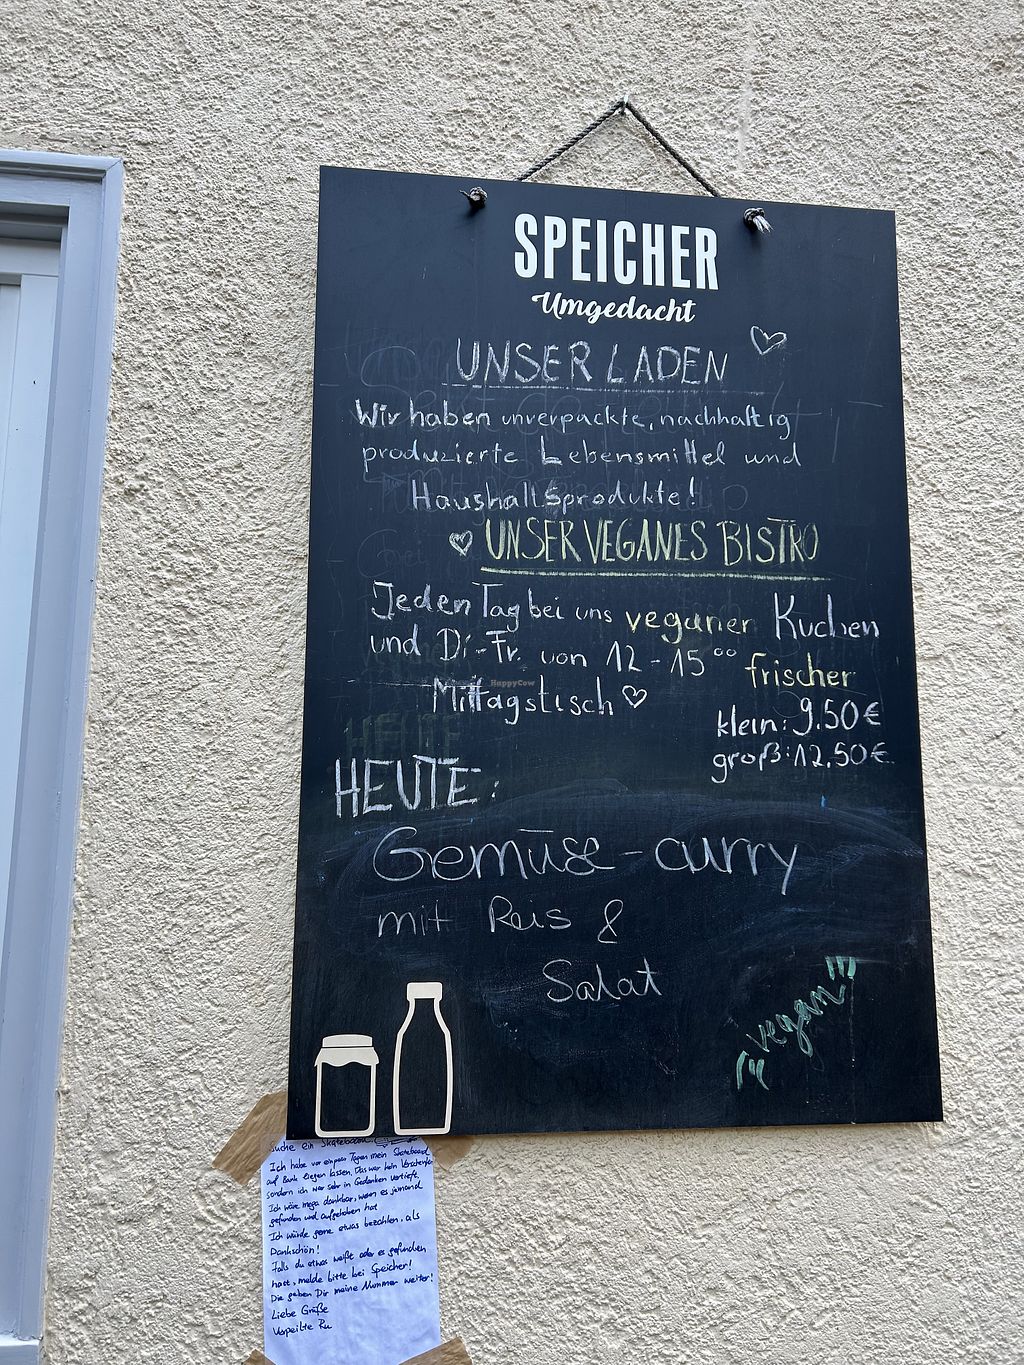 SPEICHER
Umgedacht
UNSER LADEN
Wir haben unverpackte, nachhaltig
produzierte Lebensmittel und
Haushaltsprodukte!
UNSER VEGANES BISTRO
Jeden Tag bei uns veganer Kuchen
und Di-Fr. von 12-15⁰⁰ frischer
Mittagstisch
HappyCow
klein: 9.50€
groß: 12,50€
HEUTE
HEUTE:
Gemüse-curry
mit Reis &
Salat
"vegan"
suche ein Skateboard
Ich habe vor ein paar Tagen mein Skateboard
auf Bank liegen lassen. Das war kein Verschenken
sondern ich war sehr in Gedanken vertieft.
Ich wäre mega dankbar, wenn es jemand
gefunden und aufgehoben hat
Ich würde gerne etwas bezahlen, als
Dankschön!
Falls du etwas weißt oder es gefunden
hast, melde bitte bei Speicher!
Die geben Dir meine Nummer weiter!
Liebe Grüße
Verpeilte